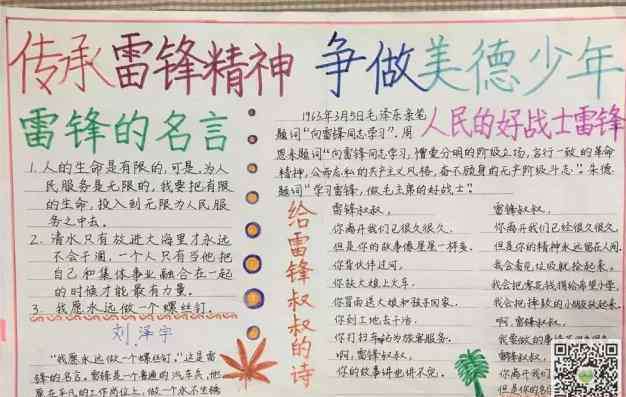 传承雷锋精神 争做美德少年
雷锋的名言
1. 人的生命是有限的,可是,为人
民服务是无限的,我要把有限
的生命,投入到无限为人民服
务之中去。
2. 清水只有放进大海里才永远
不会干涸,一个人只有当他把
自己和集体事业融合在一起
的时候才能最有力量。
3. 我愿永远做一个螺丝钉。
刘泽宇
“我愿永远做一个螺丝钉。”这是雷
锋的名言。雷锋是一个普通的汽车兵,他
1963年3月5日毛泽东亲笔
题词“向雷锋同志学习”。周
人民的好战士雷锋
恩来题词“向雷锋同志学习,憎爱分明的阶级立场,言行一致的革命
精神,公而忘私的共产主义风格,奋不顾身的无产阶级斗志”;朱德
题词“学习雷锋,做毛主席的好战士”。
给雷锋叔叔的诗
雷锋叔叔,
你离开我们已很久很久。
但是你的故事像星星一样多。
你背伙伴过河,
你扶大娘上火车,
你冒雨送大娘和孩子回家。
你到工地去干活,
你打扫车站为旅客服务。
啊,雷锋叔叔,
你的故事讲也讲不完。
雷锋叔叔,
你离开我们已经很久很久。
但是你的精神永远留在人间。
我会看见垃圾就捡起来。
我会把零花钱捐给希望小学。
我会把摔跤的小朋友扶起来。
啊,雷锋叔叔,
我要做的事情
雷锋叔叔,
你离开我们
但是你的